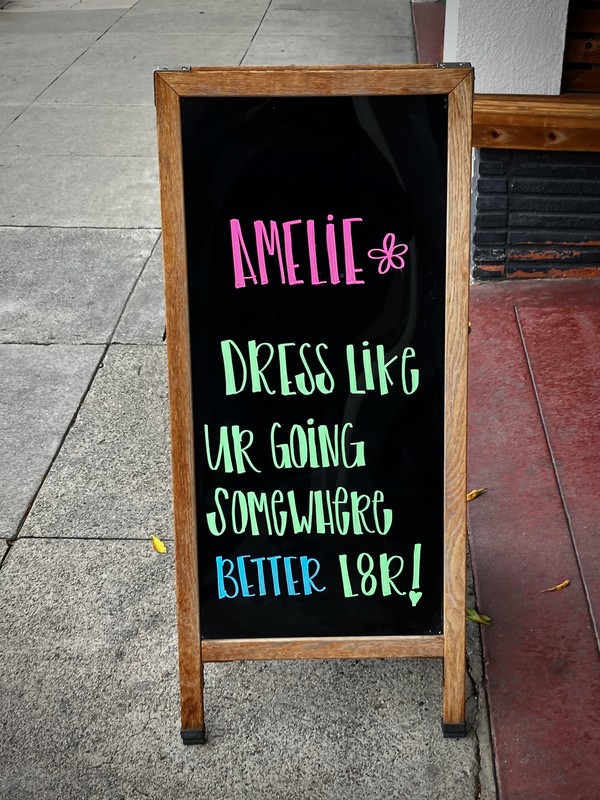 AMELiE
DRESS LiKe
UR GOiNG
SOMeWHeRe
BETTER L8R!